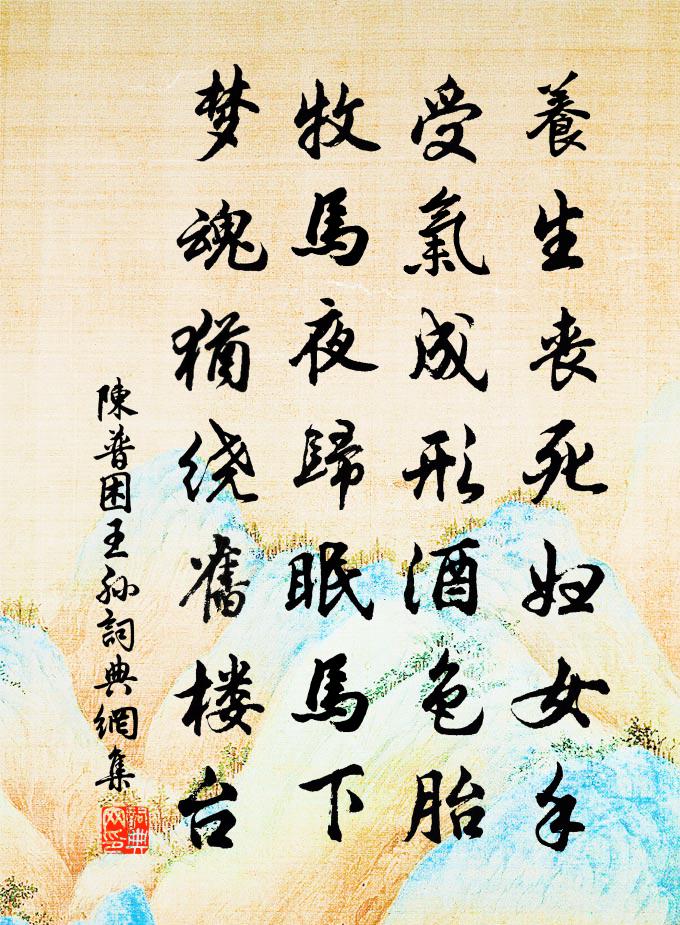 養生丧死妇女手
受氣成形酒色胎
牧馬夜歸眠馬下
梦魂犹绕舊楼台
陳普困王孙詞典網集
詞典網印